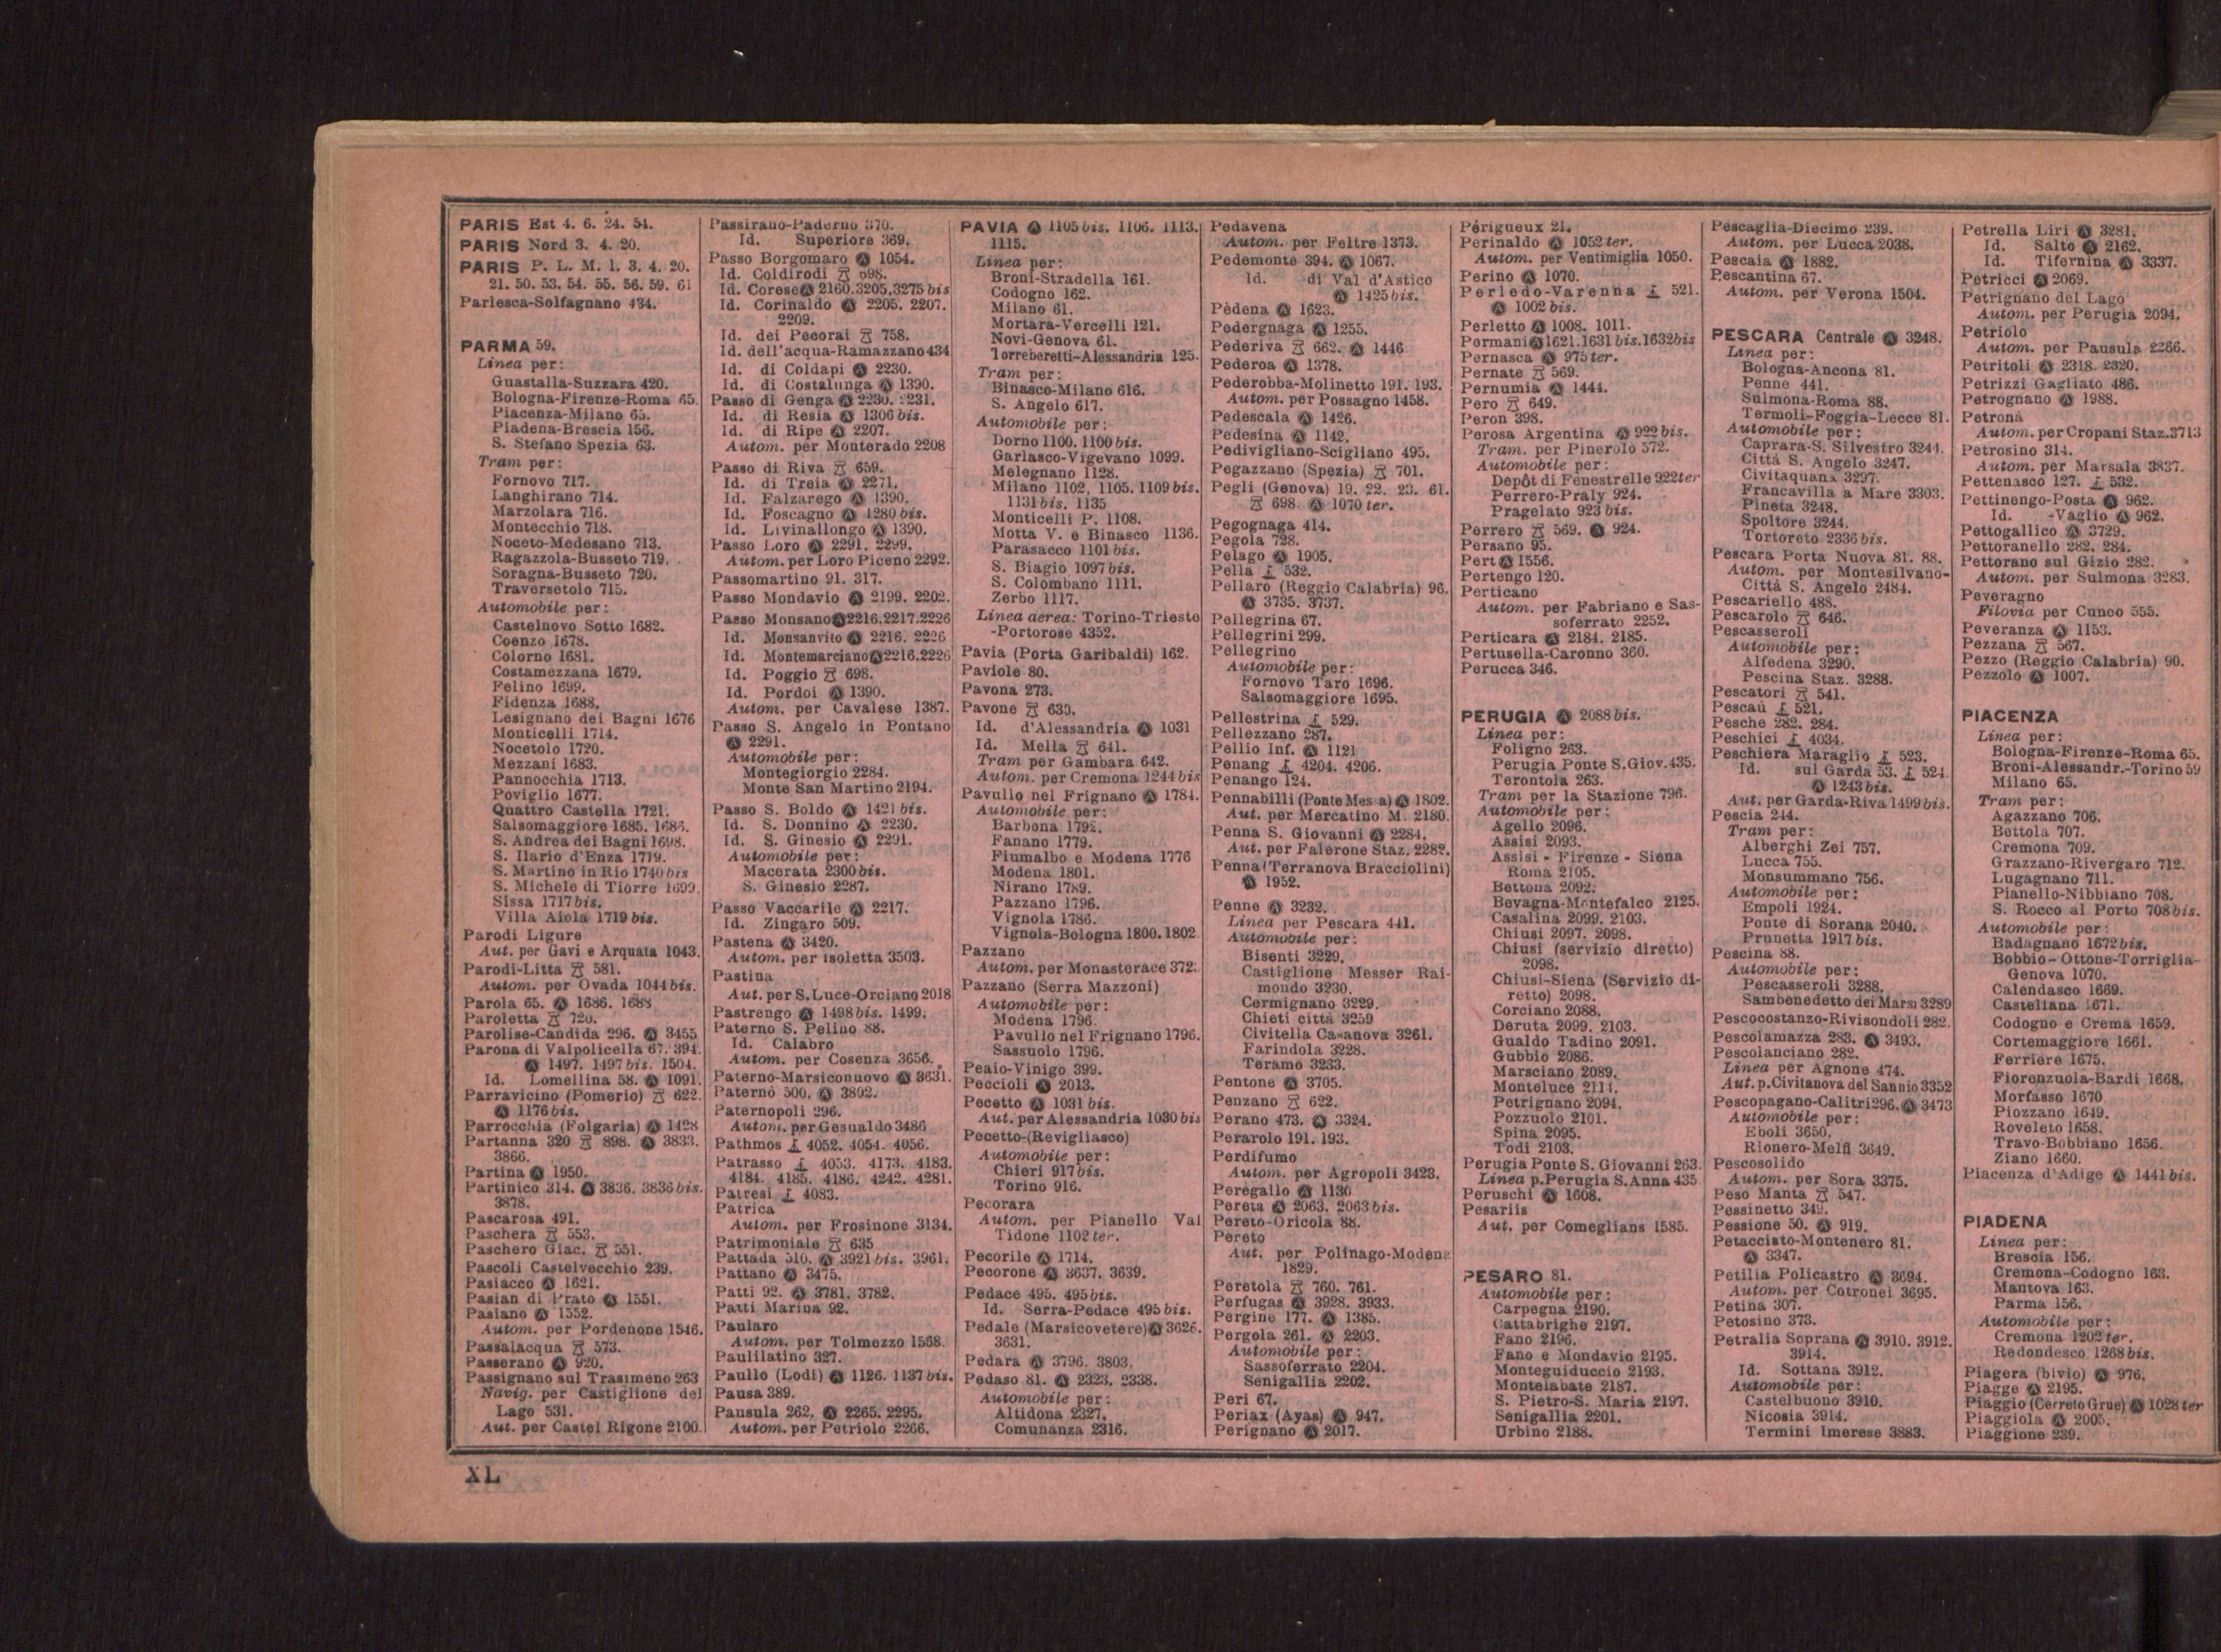 PARIS Est 4. 6. 24. 54.
PARIS Nord 3. 4. 20.
PARIS P. L. M. 1. 3. 4. 20.
21. 50. 53. 54. 55. 56. 59. 61
Parlesca-Solfagnano 434.
PARMA 59.
Linea per:
Guastalla-Suzzara 420.
Bologna-Firenze-Roma 65.
Piacenza-Milano 65.
Piadena-Brescia 156.
S. Stefano Spezia 63.
Tram per:
Fornovo 717.
Langhirano 714.
Marzolara 716.
Montecchio 718.
Noceto-Medesano 713.
Ragazzola-Busseto 719.
Soragna-Busseto 720.
Traversetolo 715.
Automobile per:
Castelnovo Sotto 1682.
Coenzo 1678.
Colorno 1681.
Costamezzana 1679.
Felino 1699.
Fidenza 1688.
Lesignano dei Bagni 1676
Monticelli 1714.
Nocetolo 1720.
Mezzani 1683.
Pannocchia 1713.
Poviglio 1677.
Quattro Castella 1721.
Salsomaggiore 1685. 1686.
S. Andrea dei Bagni 1698.
S. Ilario d'Enza 1719.
S. Martino in Rio 1740 bis
S. Michele di Tiorre 1699.
Sissa 1717 bis.
Villa Aiola 1719 bis.
Parodi Ligure
Aut. per Gavi e Arquata 1043.
Parodi-Litta 581.
Autom. per Ovada 1044 bis.
Parola 65. Ⓐ 1686. 1688
Paroletta 720.
Parolise-Candida 296. Ⓐ 3455
Parona di Valpolicella 67. 394.
Ⓐ 1497. 1497 bis. 1504.
Id. Lomellina 58. Ⓐ 1091.
Parravicino (Pomerio) 622.
Ⓐ 1176 bis.
Parrocchia (Folgaria) Ⓐ 1428
Partanna 320 898. Ⓐ 3833.
3866.
Partina Ⓐ 1950.
Partinico 314. Ⓐ 3836. 3836 bis.
3878.
Pascarosa 491.
Paschera 553.
Paschero Giac. 551.
Pascoli Castelvecchio 239.
Pasiacco Ⓐ 1621.
Pasian di Prato Ⓐ 1551.
Pasiano Ⓐ 1552.
Autom. per Pordenone 1546.
Passalacqua 573.
Passerano Ⓐ 920.
Passignano sul Trasimeno 263
Navig. per Castiglione del
Lago 531.
Aut. per Castel Rigone 2100.
Passirano-Paderno 370.
Id. Superiore 369.
Passo Borgomaro Ⓐ 1054.
Id. Coldirodi 698.
Id. Corese Ⓐ 2160.3205.3275 bis
Id. Corinaldo Ⓐ 2205. 2207.
2209.
Id. dei Pecorai 758.
Id. dell'acqua-Ramazzano 434
Id. di Coldapi Ⓐ 2230.
Id. di Costalunga Ⓐ 1390.
Passo di Genga Ⓐ 2230. 2231.
Id. di Resia Ⓐ 1306 bis.
Id. di Ripe Ⓐ 2207.
Autom. per Monterado 2208
Passo di Riva 659.
Id. di Treia Ⓐ 2271.
Id. Falzarego Ⓐ 1390.
Id. Foscagno Ⓐ 1280 bis.
Id. Livinallongo Ⓐ 1390.
Passo Loro Ⓐ 2291. 2299.
Autom. per Loro Piceno 2292.
Passomartino 91. 317.
Passo Mondavio Ⓐ 2199. 2202.
Passo Monsano Ⓐ 2216.2217.2226
Id. Monsanvito Ⓐ 2216. 2226
Id. Montemarciano Ⓐ 2216.2226
Id. Poggio 698.
Id. Pordoi Ⓐ 1390.
Autom. per Cavalese 1387.
Passo S. Angelo in Pontano
Ⓐ 2291.
Automobile per:
Montegiorgio 2284.
Monte San Martino 2194.
Passo S. Boldo Ⓐ 1421 bis.
Id. S. Donnino Ⓐ 2230.
Id. S. Ginesio Ⓐ 2291.
Automobile per:
Macerata 2300 bis.
S. Ginesio 2287.
Passo Vaccarile Ⓐ 2217.
Id. Zingaro 509.
Pastena Ⓐ 3420.
Autom. per Isoletta 3503.
Pastina
Aut. per S. Luce-Orciano 2018
Pastrengo Ⓐ 1498 bis. 1499.
Paterno S. Pelino 88.
Id. Calabro
Autom. per Cosenza 3656.
Paterno-Marsiconuovo Ⓐ 3631.
Paternò 500. Ⓐ 3802.
Paternopoli 296.
Autom. per Gesualdo 3486
Pathmos 4052. 4054. 4056.
Patrasso 4053. 4173. 4183.
4184. 4185. 4186. 4242. 4281.
Patresi 4083.
Patrica
Autom. per Frosinone 3134.
Patrimoniale 635
Pattada 510. Ⓐ 3921 bis. 3961.
Pattano Ⓐ 3475.
Patti 92. Ⓐ 3781. 3782.
Patti Marina 92.
Paularo
Autom. per Tolmezzo 1568.
Paulilatino 327.
Paullo (Lodi) Ⓐ 1126. 1137 bis.
Pausa 389.
Pausula 262. Ⓐ 2265. 2295.
Autom. per Petriolo 2266.
PAVIA Ⓐ 1105 bis. 1106. 1113.
1115.
Linea per:
Broni-Stradella 161.
Codogno 162.
Milano 61.
Mortara-Vercelli 121.
Novi-Genova 61.
Torreberetti-Alessandria 125.
Tram per:
Binasco-Milano 616.
S. Angelo 617.
Automobile per:
Dorno 1100. 1100 bis.
Garlasco-Vigevano 1099.
Melegnano 1128.
Milano 1102, 1105. 1109 bis.
1131 bis. 1135
Monticelli P. 1108.
Motta V. e Binasco 1136.
Parasacco 1101 bis.
S. Biagio 1097 bis.
S. Colombano 1111.
Zerbo 1117.
Linea aerea: Torino-Trieste
-Portorose 4352.
Pavia (Porta Garibaldi) 162.
Paviole 80.
Pavona 273.
Pavone 630.
Id. d'Alessandria Ⓐ 1031
Id. Mella 641.
Tram per Gambara 642.
Autom. per Cremona 1244 bis
Pavullo nel Frignano Ⓐ 1784.
Automobile per:
Barbona 1792.
Fanano 1779.
Fiumalbo e Modena 1776
Modena 1801.
Nirano 1789.
Pazzano 1796.
Vignola 1786.
Vignola-Bologna 1800. 1802.
Pazzano
Autom. per Monasterace 372
Pazzano (Serra Mazzoni)
Automobile per:
Modena 1796.
Pavullo nel Frignano 1796.
Sassuolo 1796.
Peaio-Vinigo 399.
Peccioli Ⓐ 2013.
Pecetto Ⓐ 1031 bis.
Aut. per Alessandria 1030 bis
Pecetto-(Revigliasco)
Automobile per:
Chieri 917 bis.
Torino 916.
Pecorara
Autom. per Pianello Val
Tidone 1102 ter.
Pecorile Ⓐ 1714.
Pecorone Ⓐ 3637. 3639.
Pedace 495. 495 bis.
Id. Serra-Pedace 495 bis.
Pedale (Marsicovetere) Ⓐ 3626.
3631.
Pedara Ⓐ 3796. 3803.
Pedaso 81. Ⓐ 2323. 2338.
Automobile per:
Altidona 2327.
Comunanza 2316.
Pedavena
Autom. per Feltre 1373.
Pedemonte 394. Ⓐ 1067.
Id. di Val d'Astico
Ⓐ 1425 bis.
Pèdena Ⓐ 1623.
Pedergnaga Ⓐ 1255.
Pederiva 662. Ⓐ 1446
Pederoa Ⓐ 1378.
Pederobba-Molinetto 191. 193.
Autom. per Possagno 1458.
Pedescala Ⓐ 1426.
Pedesina Ⓐ 1142.
Pedivigliano-Scigliano 495.
Pegazzano (Spezia) 701.
Pegli (Genova) 19. 22. 23. 61.
698. Ⓐ 1070 ter.
Pegognaga 414.
Pegola 728.
Pelago Ⓐ 1905.
Pella 532.
Pellaro (Reggio Calabria) 96.
Ⓐ 3735. 3737.
Pellegrina 67.
Pellegrini 299.
Pellegrino
Automobile per:
Fornovo Taro 1696.
Salsomaggiore 1695.
Pellestrina 529.
Pellezzano 287.
Pellio Inf. Ⓐ 1121
Penang 4204. 4206.
Penango 124.
Pennabilli (Ponte Mes a) Ⓐ 1802.
Aut. per Mercatino M. 2180.
Penna S. Giovanni Ⓐ 2284.
Aut. per Falerone Staz. 2282.
Penna (Terranova Bracciolini)
Ⓐ 1952.
Penne Ⓐ 3232.
Linea per Pescara 441.
Automobile per:
Bisenti 3229.
Castiglione Messer Rai-
mondo 3230.
Cermignano 3229.
Chieti città 3259
Civitella Casanova 3261.
Farindola 3228.
Teramo 3233.
Pentone Ⓐ 3705.
Penzano 622.
Perano 473. Ⓐ 3324.
Perarolo 191. 193.
Perdifumo
Autom. per Agropoli 3423.
Peregallo Ⓐ 1130
Pereta Ⓐ 2063. 2063 bis.
Pereto-Oricola 88.
Pereto
Aut. per Polinago-Modena
1829.
Peretola 760. 761.
Perfugas Ⓐ 3928. 3933.
Pergine 177. Ⓐ 1385.
Pergola 261. Ⓐ 2203.
Automobile per:
Sassoferrato 2204.
Senigallia 2202.
Peri 67.
Periax (Ayas) Ⓐ 947.
Perignano Ⓐ 2017.
Périgueux 21.
Perinaldo Ⓐ 1052 ter.
Autom. per Ventimiglia 1050.
Perino Ⓐ 1070.
Perledo-Varenna 521.
Ⓐ 1002 bis.
Perletto Ⓐ 1008. 1011.
Permani Ⓐ 1621.1631 bis.1632 bis
Pernasca Ⓐ 975 ter.
Pernate 569.
Pernumia Ⓐ 1444.
Pero 649.
Peron 398.
Perosa Argentina Ⓐ 922 bis.
Tram. per Pinerolo 572.
Automobile per:
Depôt di Fenestrelle 922 ter
Perrero-Praly 924.
Pragelato 923 bis.
Perrero 569. Ⓐ 924.
Persano 95.
Pert Ⓐ 1556.
Pertengo 120.
Perticano
Autom. per Fabriano e Sas-
soferrato 2252.
Perticara Ⓐ 2184. 2185.
Pertusella-Caronno 360.
Perucca 346.
PERUGIA Ⓐ 2088 bis.
Linea per:
Foligno 263.
Perugia Ponte S. Giov. 435.
Terontola 263.
Tram per la Stazione 796.
Automobile per:
Agello 2096.
Assisi 2093.
Assisi - Firenze - Siena
Roma 2105.
Bettona 2092.
Bevagna-Montefalco 2125.
Casalina 2099. 2103.
Chiusi 2097. 2098.
Chiusi (servizio diretto)
2098.
Chiusi-Siena (Servizio di-
retto) 2098.
Corciano 2088.
Deruta 2099. 2103.
Gualdo Tadino 2091.
Gubbio 2086.
Marsciano 2089.
Monteluce 2111.
Petrignano 2094.
Pozzuolo 2101.
Spina 2095.
Todi 2103.
Perugia Ponte S. Giovanni 263.
Linea p. Perugia S. Anna 435
Peruschi Ⓐ 1608.
Pesariis
Aut. per Comeglians 1585.
PESARO 81.
Automobile per:
Carpegna 2190.
Cattabrighe 2197.
Fano 2196.
Fano e Mondavio 2195.
Monteguiduccio 2193.
Montelabate 2187.
S. Pietro-S. Maria 2197.
Senigallia 2201.
Urbino 2188.
Pescaglia-Diecimo 239.
Autom. per Lucca 2038.
Pescaia Ⓐ 1882.
Pescantina 67.
Autom. per Verona 1504.
PESCARA Centrale Ⓐ 3248.
Linea per:
Bologna-Ancona 81.
Penne 441.
Sulmona-Roma 88.
Termoli-Foggia-Lecce 81.
Automobile per:
Caprara-S. Silvestro 3244.
Città S. Angelo 3247.
Civitaquana 3297.
Francavilla a Mare 3303.
Pineta 3248.
Spoltore 3244.
Tortoreto 2336 bis.
Pescara Porta Nuova 81. 88.
Autom. per Montesilvano-
Città S. Angelo 2484.
Pescariello 488.
Pescarolo 646.
Pescasseroli
Automobile per:
Alfedena 3290.
Pescina Staz. 3288.
Pescatori 541.
Pescaù 521.
Pesche 282. 284.
Peschici 4034.
Peschiera Maraglio 523.
Id. sul Garda 53. 524.
Ⓐ 1243 bis.
Aut. per Garda-Riva 1499 bis.
Pescia 244.
Tram per:
Alberghi Zei 757.
Lucca 755.
Monsummano 756.
Automobile per:
Empoli 1924.
Ponte di Sorana 2040.
Prunetta 1917 bis.
Pescina 88.
Automobile per:
Pescasseroli 3288.
Sambenedetto dei Marsi 3289
Pescocostanzo-Rivisondoli 282.
Pescolamazza 283. Ⓐ 3493.
Pescolanciano 282.
Linea per Agnone 474.
Aut. p. Civitanova del Sannio 3352
Pescopagano-Calitri 296. Ⓐ 3473
Automobile per:
Eboli 3650.
Rionero-Melfi 3649.
Pescosolido
Autom. per Sora 3375.
Peso Manta 547.
Pessinetto 349.
Pessione 50. Ⓐ 919.
Petacciato-Montenero 81.
Ⓐ 3347.
Petilia Policastro Ⓐ 3694.
Autom. per Cotronei 3695.
Petina 307.
Petosino 373.
Petralia Soprana Ⓐ 3910. 3912.
3914.
Id. Sottana 3912.
Automobile per:
Castelbuono 3910.
Nicosia 3914.
Termini Imerese 3883.
Petrella Liri Ⓐ 3281.
Id. Salto Ⓐ 2162.
Id. Tifernina Ⓐ 3337.
Petricci Ⓐ 2069.
Petrignano del Lago
Autom. per Perugia 2094.
Petriolo
Autom. per Pausula 2266.
Petritoli Ⓐ 2318. 2320.
Petrizzi Gagliato 486.
Petrognano Ⓐ 1988.
Petronà
Autom. per Cropani Staz. 3713
Petrosino 314.
Autom. per Marsala 3837.
Pettenasco 127. 532.
Pettinengo-Posta Ⓐ 962.
Id. -Vaglio Ⓐ 962.
Pettogallico Ⓐ 3729.
Pettoranello 282. 284.
Pettorano sul Gizio 282.
Autom. per Sulmona 3283.
Peveragno
Filovia per Cuneo 555.
Peveranza Ⓐ 1153.
Pezzana 567.
Pezzo (Reggio Calabria) 90.
Pezzolo Ⓐ 1007.
PIACENZA
Linea per:
Bologna-Firenze-Roma 65.
Broni-Alessandr.-Torino 59
Milano 65.
Tram per:
Agazzano 706.
Bettola 707.
Cremona 709.
Grazzano-Rivergaro 712.
Lugagnano 711.
Pianello-Nibbiano 708.
S. Rocco al Porto 708 bis.
Automobile per:
Badagnano 1672 bis.
Bobbio-Ottone-Torriglia-
Genova 1070.
Calendasco 1669.
Castellana 1671.
Codogno e Crema 1659.
Cortemaggiore 1661.
Ferriere 1675.
Fiorenzuola-Bardi 1668.
Morfasso 1670
Piozzano 1649.
Roveleto 1658.
Travo-Bobbiano 1656.
Ziano 1660.
Piacenza d'Adige Ⓐ 1441 bis.
PIADENA
Linea per:
Brescia 156.
Cremona-Codogno 163.
Mantova 163.
Parma 156.
Automobile per:
Cremona 1202 ter.
Redondesco 1268 bis.
Piagera (bivio) Ⓐ 976.
Piagge Ⓐ 2195.
Piaggio (Cerreto Grue) Ⓐ 1028 ter
Piaggiola Ⓐ 2005.
Piaggione 239.
XL